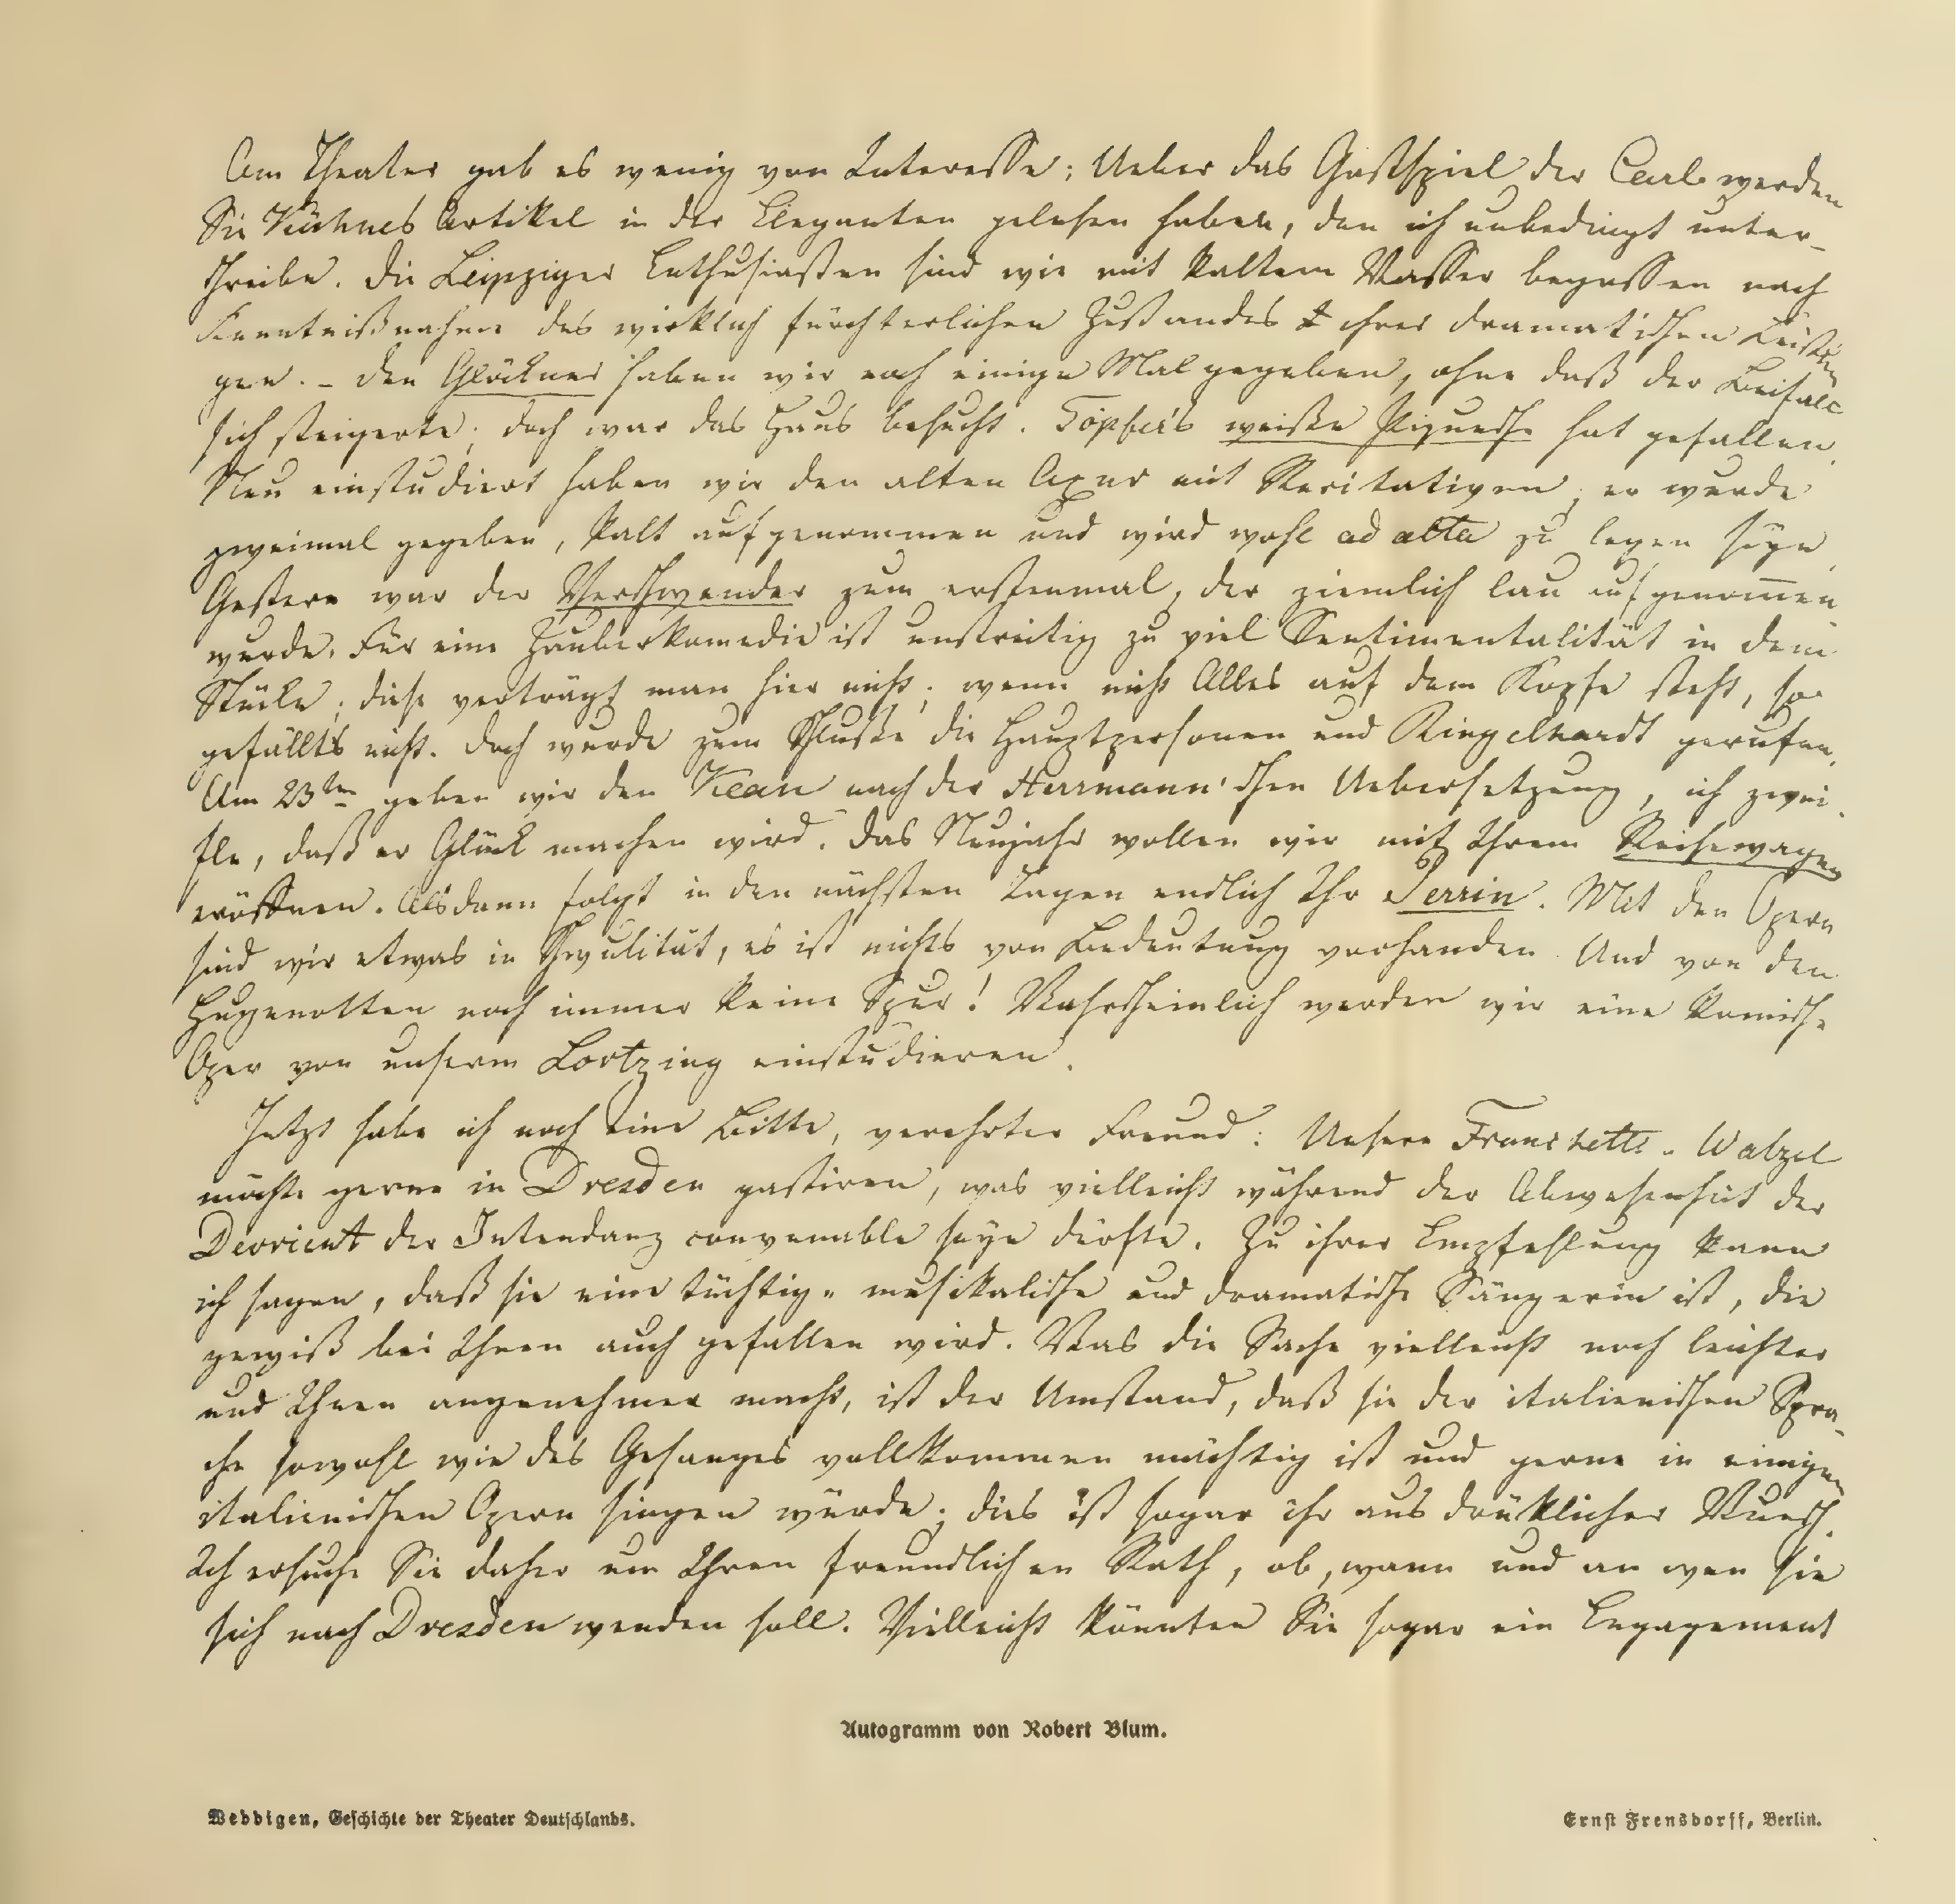 Am Theater gab es wenig von Interesse; Ueber das Gastspiel der Carl werden
Sie Kühnes Artikel in der Eleganten gelesen haben, den ich unbedingt unter-
schreibe. Die Leipziger Enthusiasten sind wie mit kaltem Wasser begossen nach
Kenntnißnahme des wirklich fürchterlichen Zustandes ihrer dramatischen Leistun
gen. – Den Glöckner haben wir noch einige Mal gegeben, ohne daß der Beifall
sich steigerte; doch war das Haus besucht. Töpfer's weiße Piquesche hat gefallen.
Neu einstudiert haben wir den alten Axur mit Recitativen; er wurde
zweimal gegeben, kalt aufgenommen und wird wohl ad acta zu legen seyn.
Gestern war der Verschwender zum erstenmal, der ziemlich lau aufgenom̅en
wurde. Für eine Zauberkomedie ist unstreitig zu viel Sentimentalität in dem
Stücke; diese verträgt man hier nicht; wenn nicht Alles auf dem Kopfe steht, so
gefällt's nicht. Doch wurde zum Schluße die Hauptpersonen und Ringelhardt gerufen.
Am 23ten geben wir den Kean nach der Herrmann'schen Uebersetzung, ich zwei-
fle, daß er Glück machen wird. Das Neujahr wollen wir mit Ihrem Reisewagen
eröffnen. Alsdann folgt in den nächsten Tagen endlich Ihr Perrin. Mit den Opern
sind wir etwas in Schwulität, es ist nichts von Bedeutung vorhanden. Und von den
Hugenotten noch immer keine Spur! Wahrscheinlich werden wir eine komische
Oper von unserm Lortzing einstudieren.
Jetzt habe ich noch eine Bitte, verehrter Freund: Unsere Franchetti-Walzel
möchte gerne in Dresden gastiren, was vielleicht während der Abwesenheit der
Devrient der Intendanz convenable seyn dürfte. Zu ihrer Empfehlung kann
ich sagen, daß sie eine tüchtig- musikalische und dramatische Sängerin ist, die
gewiß bei Ihnen auch gefallen wird. Was die Sache vielleicht noch leichter
und Ihnen angenehmer macht, ist der Umstand, daß sie der italienischen Spra-
che sowohl wie des Gesanges vollkommen mächtig ist und gerne in einigen
italienischen Opern singen würde; dies ist sogar ihr ausdrücklicher Wunsch.
Ich ersuche Sie daher um Ihren freundlichen Rath, ob, wann und an wen sie
sich nach Dresden wenden soll. Vielleicht könnten Sie sogar ein Engagement
Autogramm von Robert Blum.
Weddigen, Geschichte der Theater Deutschlands.
Ernst Frensdorff, Berlin.